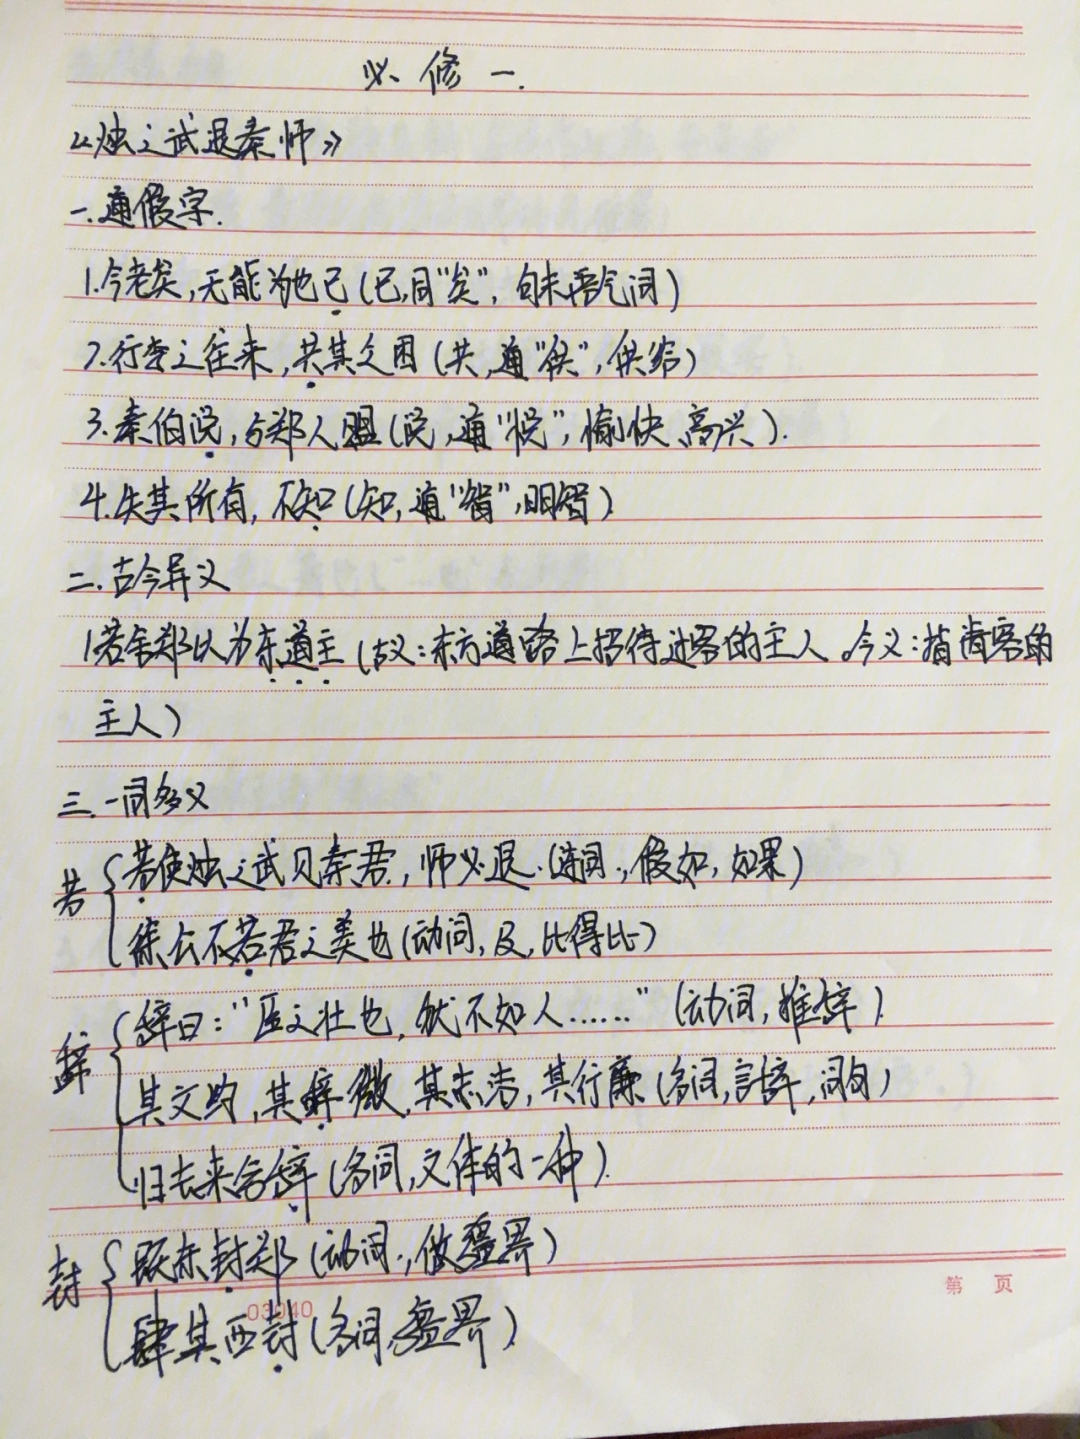 必修一.
《烛之武退秦师》
一.通假字.
1.今老矣,无能为也已(已,同"矣",句末语气词)
2.行李之往来,共其乏困(共,通"供",供给)
3.秦伯说,与郑人盟(说,通"悦",愉快、高兴).
4.失其所有,不知(知,通"智",明智)
二.古今异义
1.若舍郑以为东道主(古义:东方道路上招待过客的主人。今义:指请客的
主人)
三.一词多义
若
若使烛之武见秦君,师必退.(连词,假如,如果)
徐公不若君之美也(动词,及,比得比)
辞
辞曰:"臣之壮也,犹不如人......"(动词,推辞)
其文约,其辞微,其志洁,其行廉(名词,言辞,词句)
归去来兮辞(名词,文体的一种).
封
既东封郑(动词,做疆界)
肆其西封(名词,疆界)
03040
第 页